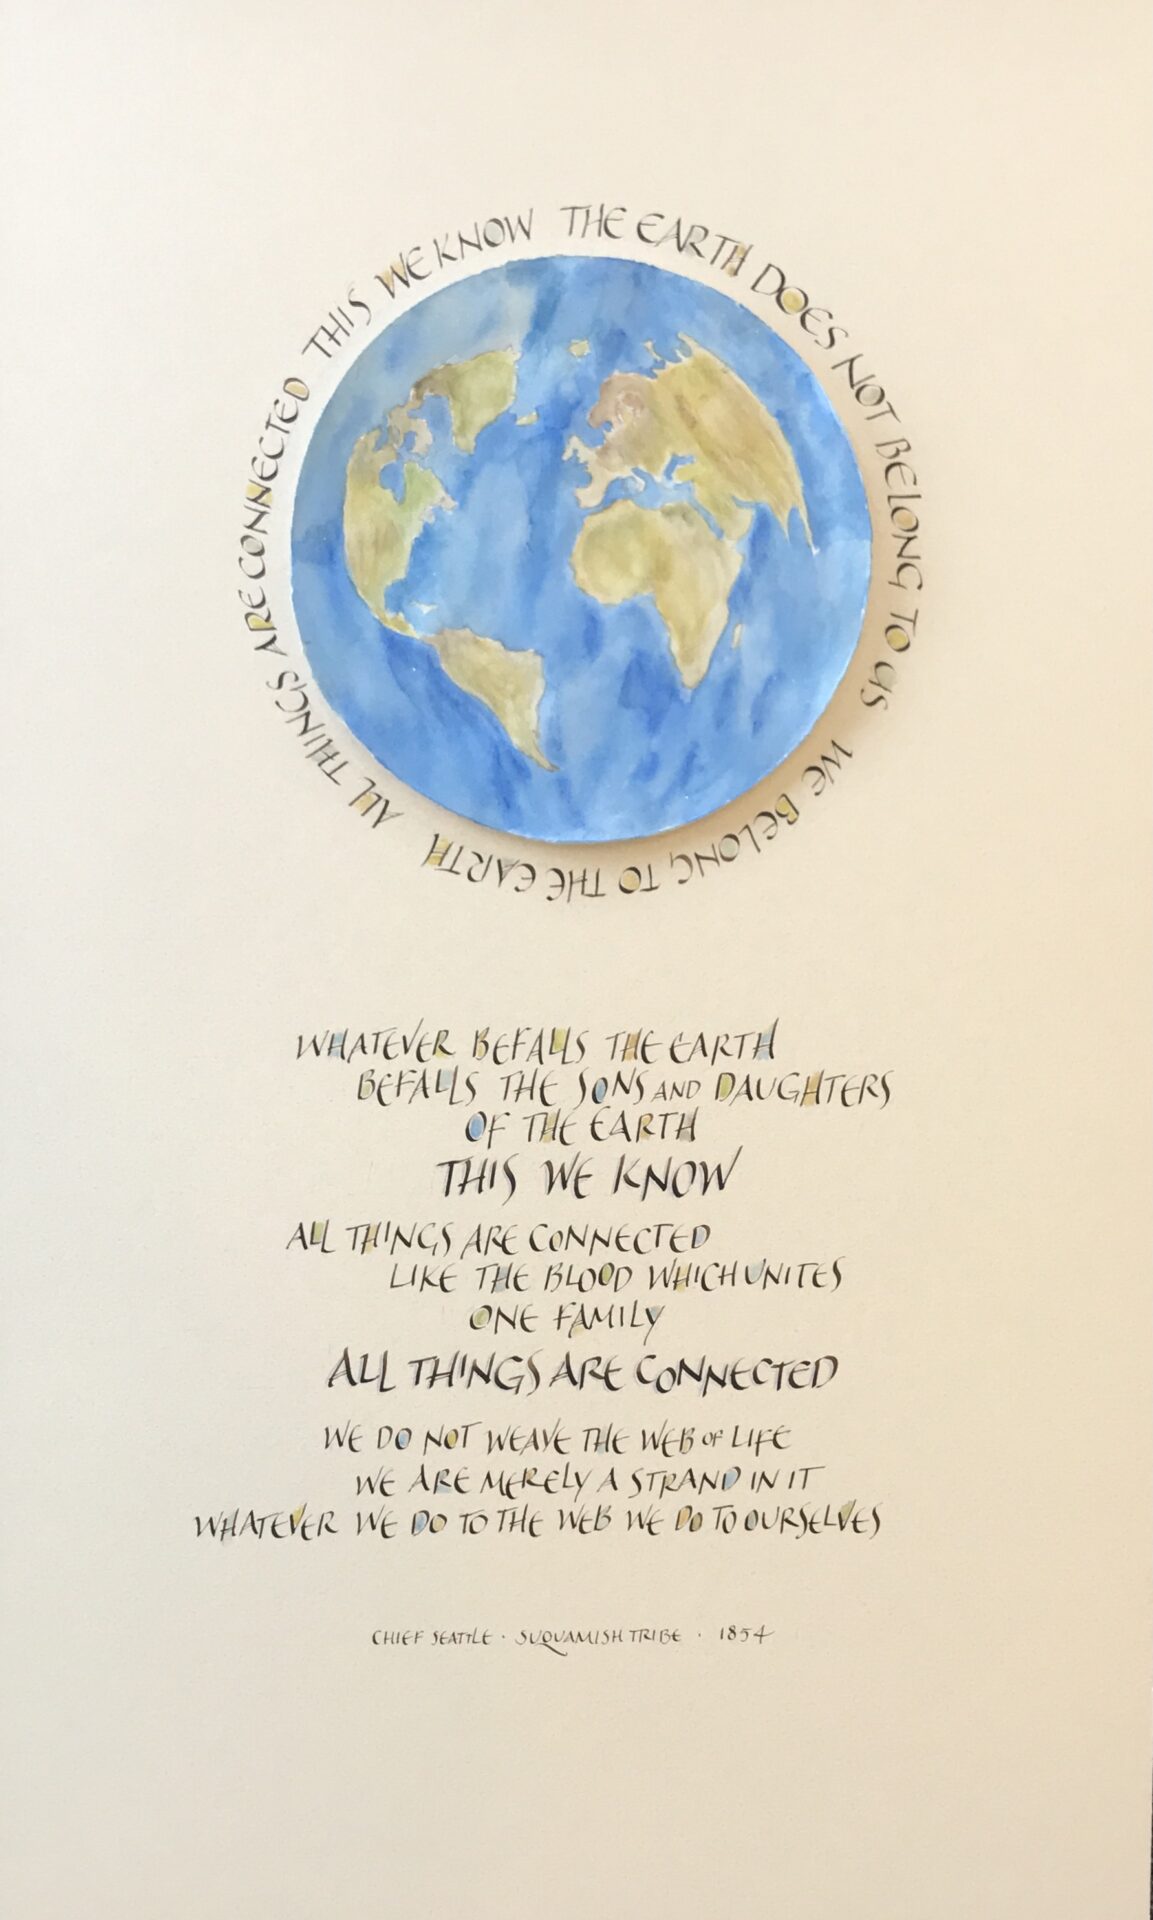 THIS WE KNOW THE EARTH DOES NOT BELONG TO US WE BELONG TO THE EARTH ALL THINGS ARE CONNECTED
WHATEVER BEFALLS THE EARTH
BEFALLS THE SONS AND DAUGHTERS
OF THE EARTH
THIS WE KNOW
ALL THINGS ARE CONNECTED
LIKE THE BLOOD WHICH UNITES
ONE FAMILY
ALL THINGS ARE CONNECTED
WE DO NOT WEAVE THE WEB OF LIFE
WE ARE MERELY A STRAND IN IT
WHATEVER WE DO TO THE WEB WE DO TO OURSELVES
CHIEF SEATTLE · SUQUAMISH TRIBE · 1854